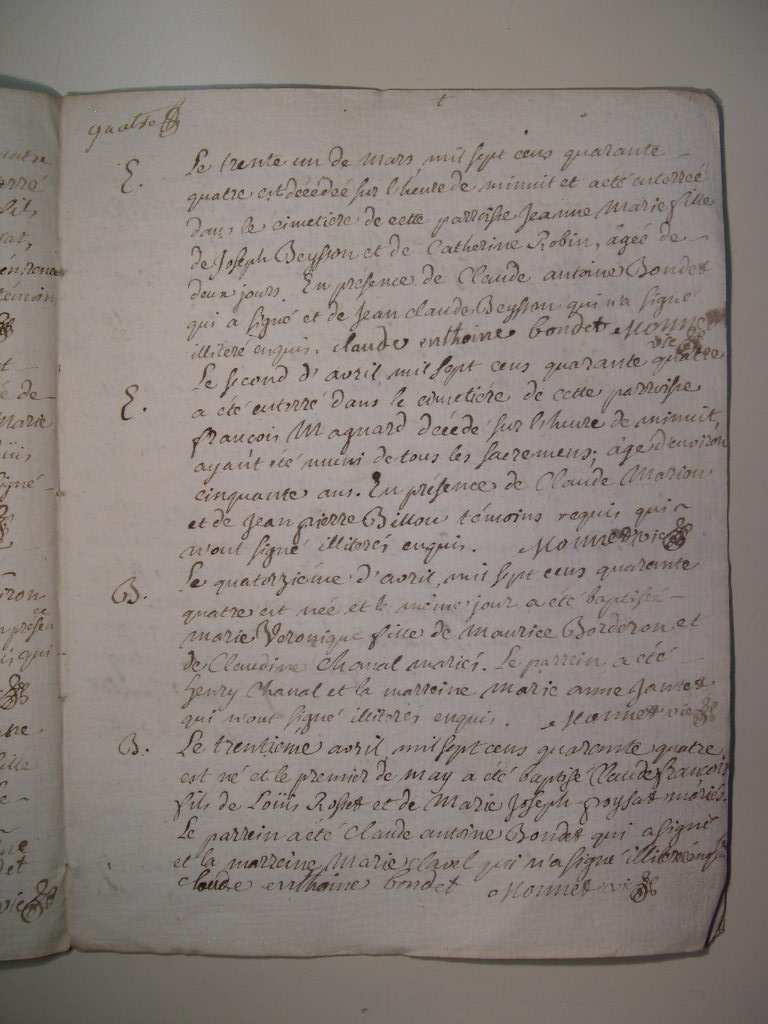 quatre
E. Le trente un de mars mil sept cens quarante
quatre est décédée sur l'heure de minuit et a eté enterreé
dans le cimetiere de cette parroisse Jeanne Marie fille
de Joseph Beysson et de Catherine Robin, âgeé de
deux jours. En presence de Claude antoine Bondet
qui a signé et de Jean Claude Beysson qui n'a signé
illiteré enquis. claude enthoine bondet Monnet
vic
Le second d'avril mil sept cens quarante quatre
E. a été enterré dans le cimetiére de cette parroisse
françois Magnard décédé sur l'heure de minuit,
ayant été muni de tous les sacremens; âgé d'environ
cinquante ans. En présence de Claude Marion
et de Jean pierre Billon témoins requis qui
n'ont signé illiterés enquis. Monnet vic
B. Le quatorziéme d'avril, mil sept cens quarante
quatre est née et le même jour a eté baptiseé
marie Veronique fille de Maurice Borderon et
de Claudine Chanal mariés. Le parrein a eté
henry Chanal et la marreine marie anne
qui n'ont signé illiterés enquis. Monnet vic
B. Le trentieme avril, mil sept cens quarante quatre
est né et le premier de may a été baptisé Claude françois
fils de Loüis Rosset et de Marie Joseph froyssat mariés.
Le parrein a été Claude antoine Bondet qui a signé
et la marreine Marie Clavel qui n'a signé illiteré
claude enthoine bondet Monnet vic